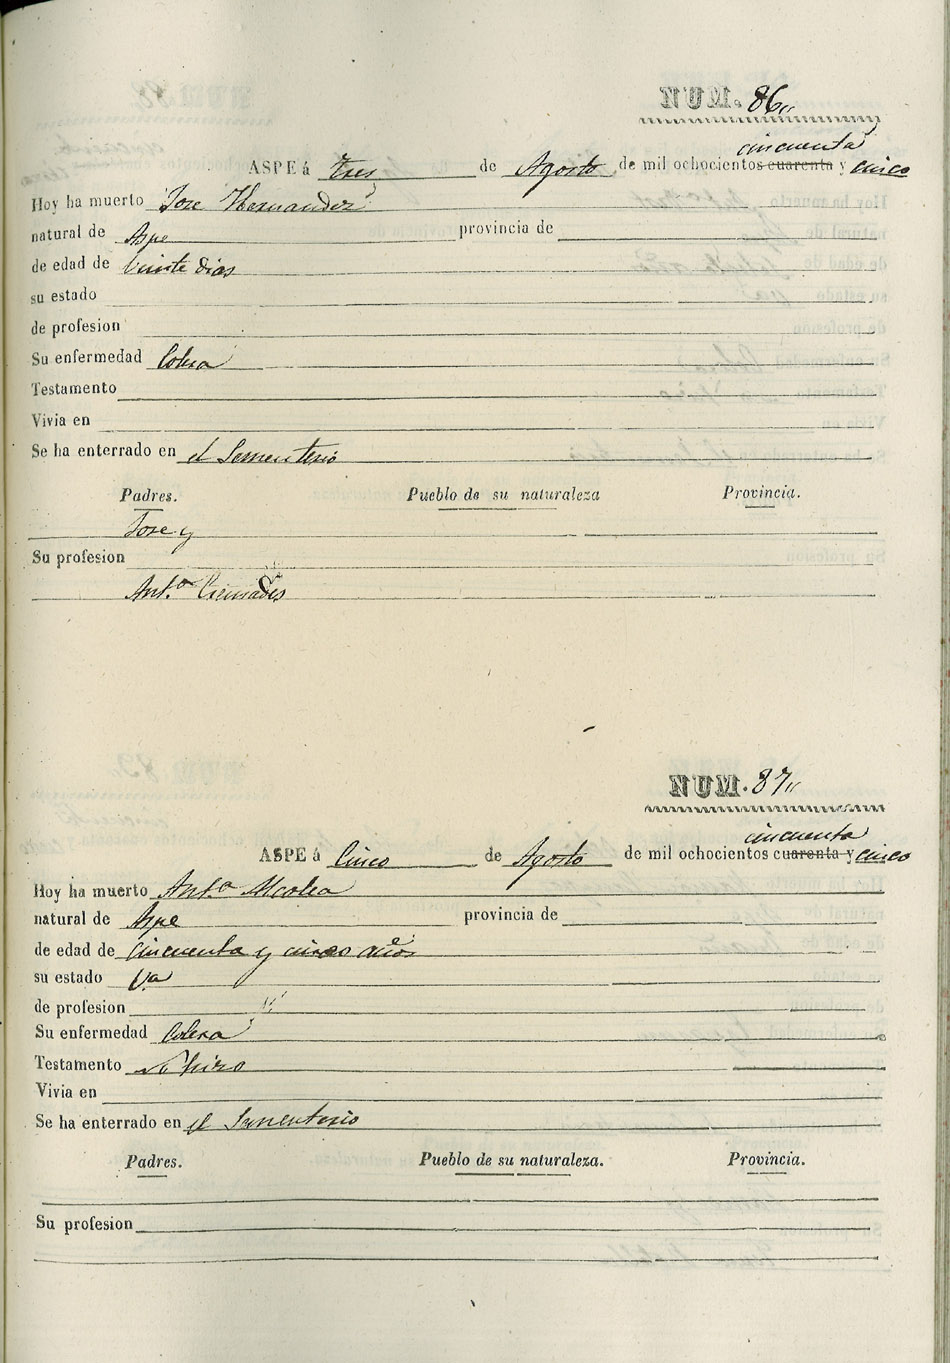 NUM. 86
cincuenta
ASPE á tres de Agosto de mil ochocientos cuarenta y cinco
Hoy ha muerto Jose Hernandez
natural de Aspe provincia de
de edad de veinte dias
su estado
de profesion
Su enfermedad Colera
Testamento
Vivia en
Se ha enterrado en el Sementerio
Padres. Pueblo de su naturaleza Provincia.
Jose y
Su profesion
Ant.ª
NUM. 87
cincuenta
ASPE á Cinco de Agosto de mil ochocientos cuarenta y cinco
Hoy ha muerto Ant.ª Alcolea
natural de Aspe provincia de
de edad de Cincuenta y cinco años
su estado Vª
de profesion
Su enfermedad Colera
Testamento No hizo
Vivia en
Se ha enterrado en el Sementerio
Padres. Pueblo de su naturaleza. Provincia.
Su profesion